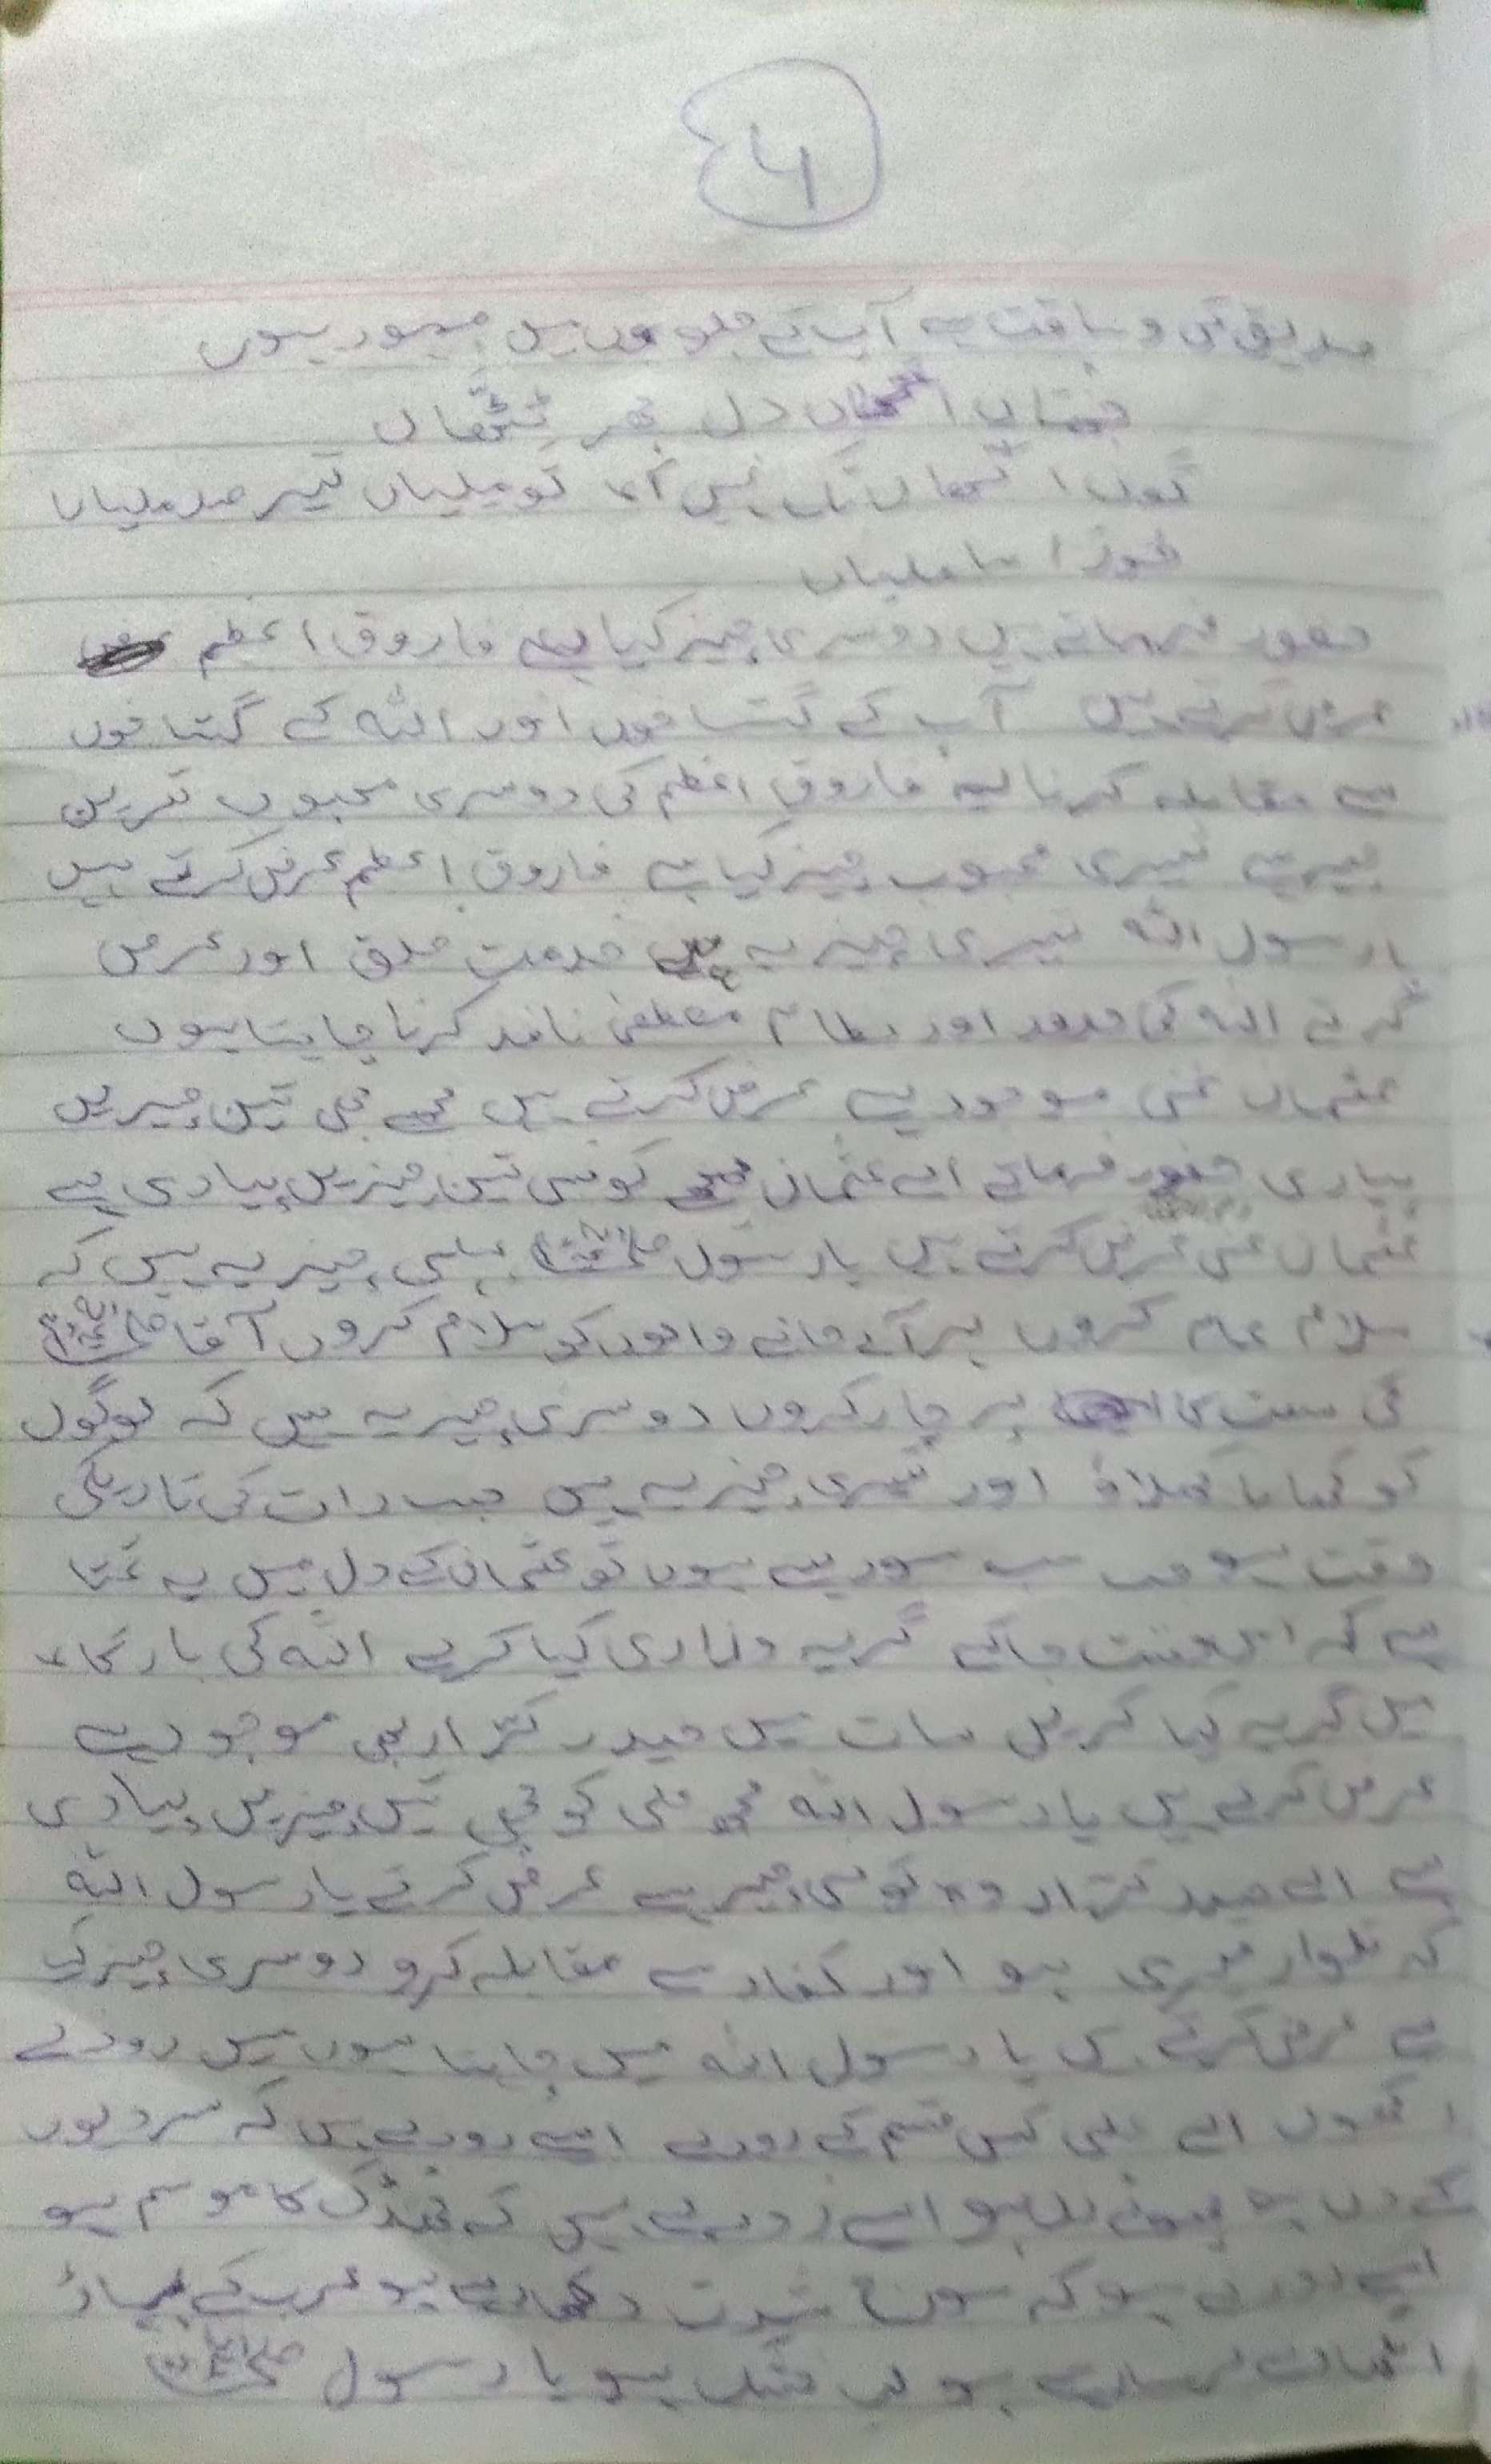 ۴
صدیق کی و آپ کے جلووں میں ہوں
اکھاں دل بھر تکھاں
تک نہیں آیا تو ملیاں تیر صدملیاں
تھوڑا سا ملیاں
حضور فرماتے ہیں دوسری چیز کیا ہے فاروق اعظم
عرض کرتے ہیں آپ کے گستاخوں اور اللہ کے گستاخوں
سے مقابلہ کرنا یہ فاروق اعظم کی دوسری محبوب ترین
چیز ہے تیسری محبوب چیز کیا ہے فاروق اعظم عرض کرتے ہیں
یارسول اللہ تیسری چیز یہ ہے خدمت خلق اور عرض
کرتے اللہ کی حدود اور نظام مصطفی نافذ کرنا چاہتا ہوں
عثمان غنی موجود ہے عرض کرتے ہیں مجھے بھی تین چیزیں
پیاری حضور فرماتے اے عثمان تجھے کونسی تین چیزیں پیاری ہے
عثمان غنی عرض کرتے ہیں یا رسول ﷺ پہلی چیز یہ ہیں کہ
سلام عام کروں ہر آنے جانے والوں کو سلام کروں آقا ﷺ
کی سنت کا پرچار کروں دوسری چیز یہ ہیں کہ لوگوں
کو کھانا کھلاؤ اور تیسری چیز یہ ہیں جب رات کی تاریکی
وقت ہو جب سب سو رہے ہوں تو عثمان کے دل میں یہ تمنا
ہے کہ اس وقت جاگے گریہ وزاری کیا کرے اللہ کی بارگاہ
میں گریہ کیا کریں سات میں حیدر کرّار بھی موجود ہے
عرض کرتے ہیں یا رسول اللہ مجھ علی کو بھی تین چیزیں پیاری
ہے اے حیدر کرّار وہ کونسی چیز ہے عرض کرتے یا رسول اللہ
کہ تلوار میری ہو اور کفار سے مقابلہ کرو دوسری چیز کیا
ہے عرض کرتے ہیں یا رسول اللہ میں چاہتا ہوں میں روزے
رکھوں اے علی کس قسم کے روزے ایسے روزے ہیں کہ سردیوں
کے دن ہو ایسے روزے نہیں کہ ٹھنڈک کا موسم ہو
ایسے روزے ہو کہ سورج شدت دکھا رہے ہو عرب کے پہاڑ
ہو لب خشک ہو یا رسول ﷺ